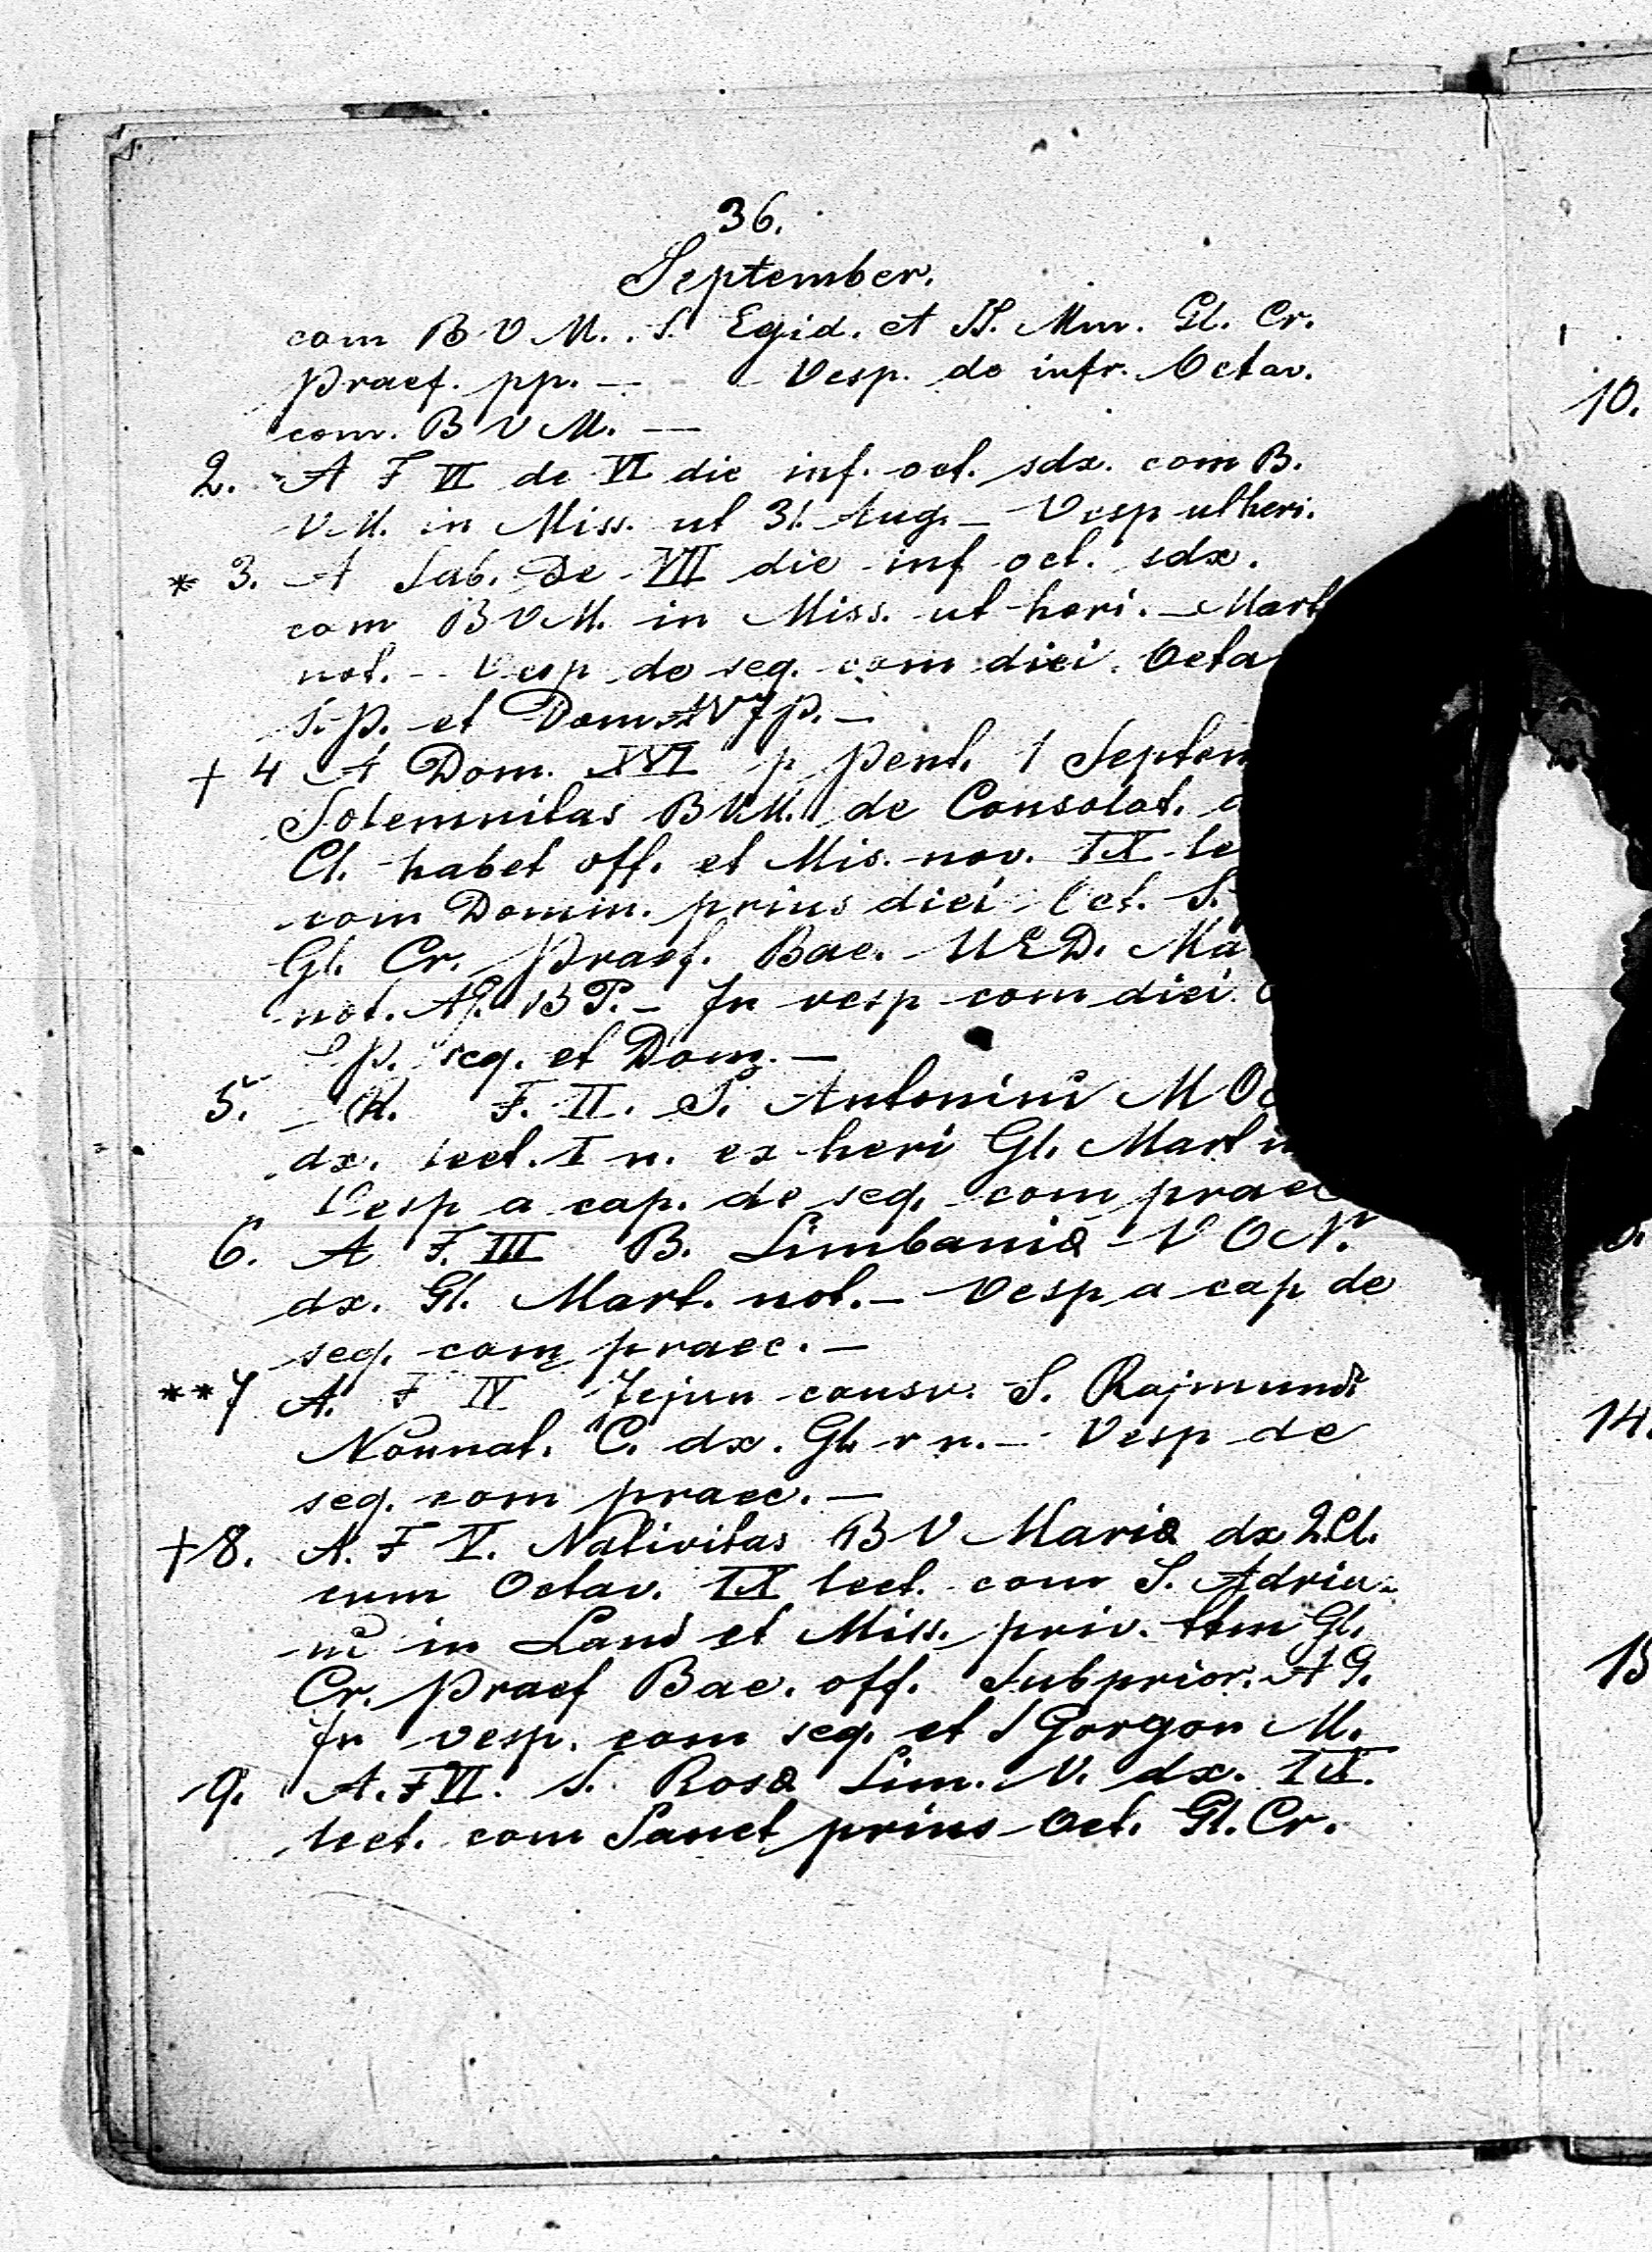 36.
September.
com B V M. S. Egid. et SS. Mm. Gl. Cr.
Praef. pp. — Vesp. de infr. Octav.
com. B V M. —
2. A F VI de VI die inf. oct. sdx. com B.
V.M. in Miss. ut 31. Aug. — Vesp ut heri.
* 3. A Sab. De VII die inf oct. sdx.
com B V M. in Miss. ut heri. — Mart
not. — Vesp de seq. com diei. Octa
S. P. et Dom.
+ 4 A Dom. XVI p Pent. 1 Septem
Solemnitas B V.M. de Consolat.
Cl. habet off. et Mis. nov. IX le
com Domin. prius diei Oct. S.
Gl. Cr. Praef. Bae. U E D. Ma
not. B P. — In vesp com diei
S p. seq. et Dom. —
5. R. F. II. S. Antonini M
dx. lect. I n. ex heri Gl. Mart
Vesp a cap. de seq. com praec
6. A F. III B. Limbaniæ V O N.
dx. Gl. Mart. not. — Vesp a cap de
seq. com praec. —
**7 A. F IV Jejun consv. S. Rajmundi
Nonnat. C. dx. Gl. r n. — Vesp de
seq. com praec. —
+8. A. F V. Nativitas B V Mariæ dx 2. Cl.
cum Octav. IX lect. com S. Adria-
ni in Laud et Miss. priv. ttm Gl.
Cr. Praef Bae. off. Subprior. A 9.
In vesp. com seq. et S Gorgon M.
9. A. F VI. S. Rosæ Lim. V. dx. IX.
lect. com Sanct prius Oct. Gl. Cr.
10.
14.
15